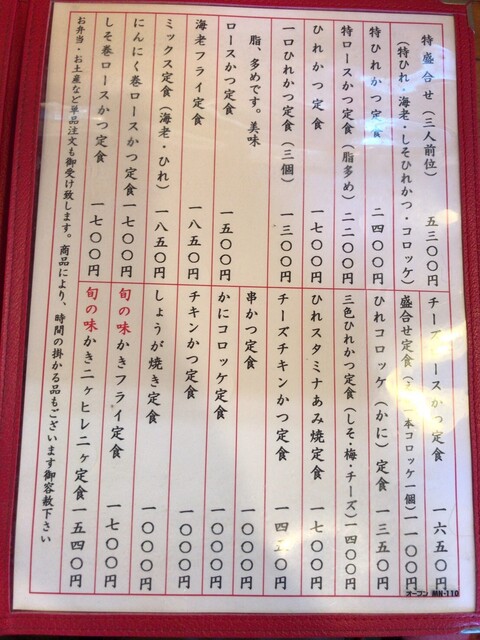 特盛合せ（三人前位） 五三〇〇円
（特ひれ・海老・しそひれかつ・コロッケ）
特ひれかつ定食 二四〇〇円
特ロースかつ定食（脂多め） 二二〇〇円
ひれかつ定食 一七〇〇円
一口ひれかつ定食（三個） 一三〇〇円
脂、多めです。美味
ロースかつ定食 一五〇〇円
海老フライ定食 一八五〇円
ミックス定食（海老・ひれ） 一八五〇円
にんにく巻ロースかつ定食 一七〇〇円
しそ巻ロースかつ定食 一七〇〇円
チーズロースかつ定食 一六五〇円
盛合せ定食（一本コロッケ一個） 一一〇〇円
ひれコロッケ（かに）定食 一三五〇円
三色ひれかつ定食（しそ・梅・チーズ） 一四〇〇円
ひれスタミナあみ焼定食 一七〇〇円
チーズチキンかつ定食 一四五〇円
串かつ定食 一〇〇〇円
かにコロッケ定食 一〇〇〇円
チキンかつ定食 一〇〇〇円
しょうが焼き定食 一〇〇〇円
旬の味かきフライ定食 一七〇〇円
旬の味かき二ヶヒレ二ヶ定食 一五四〇円
お弁当・お土産など単品注文も御受け致します。商品により、時間の掛かる品もございます御容赦下さい
オープン MN-110